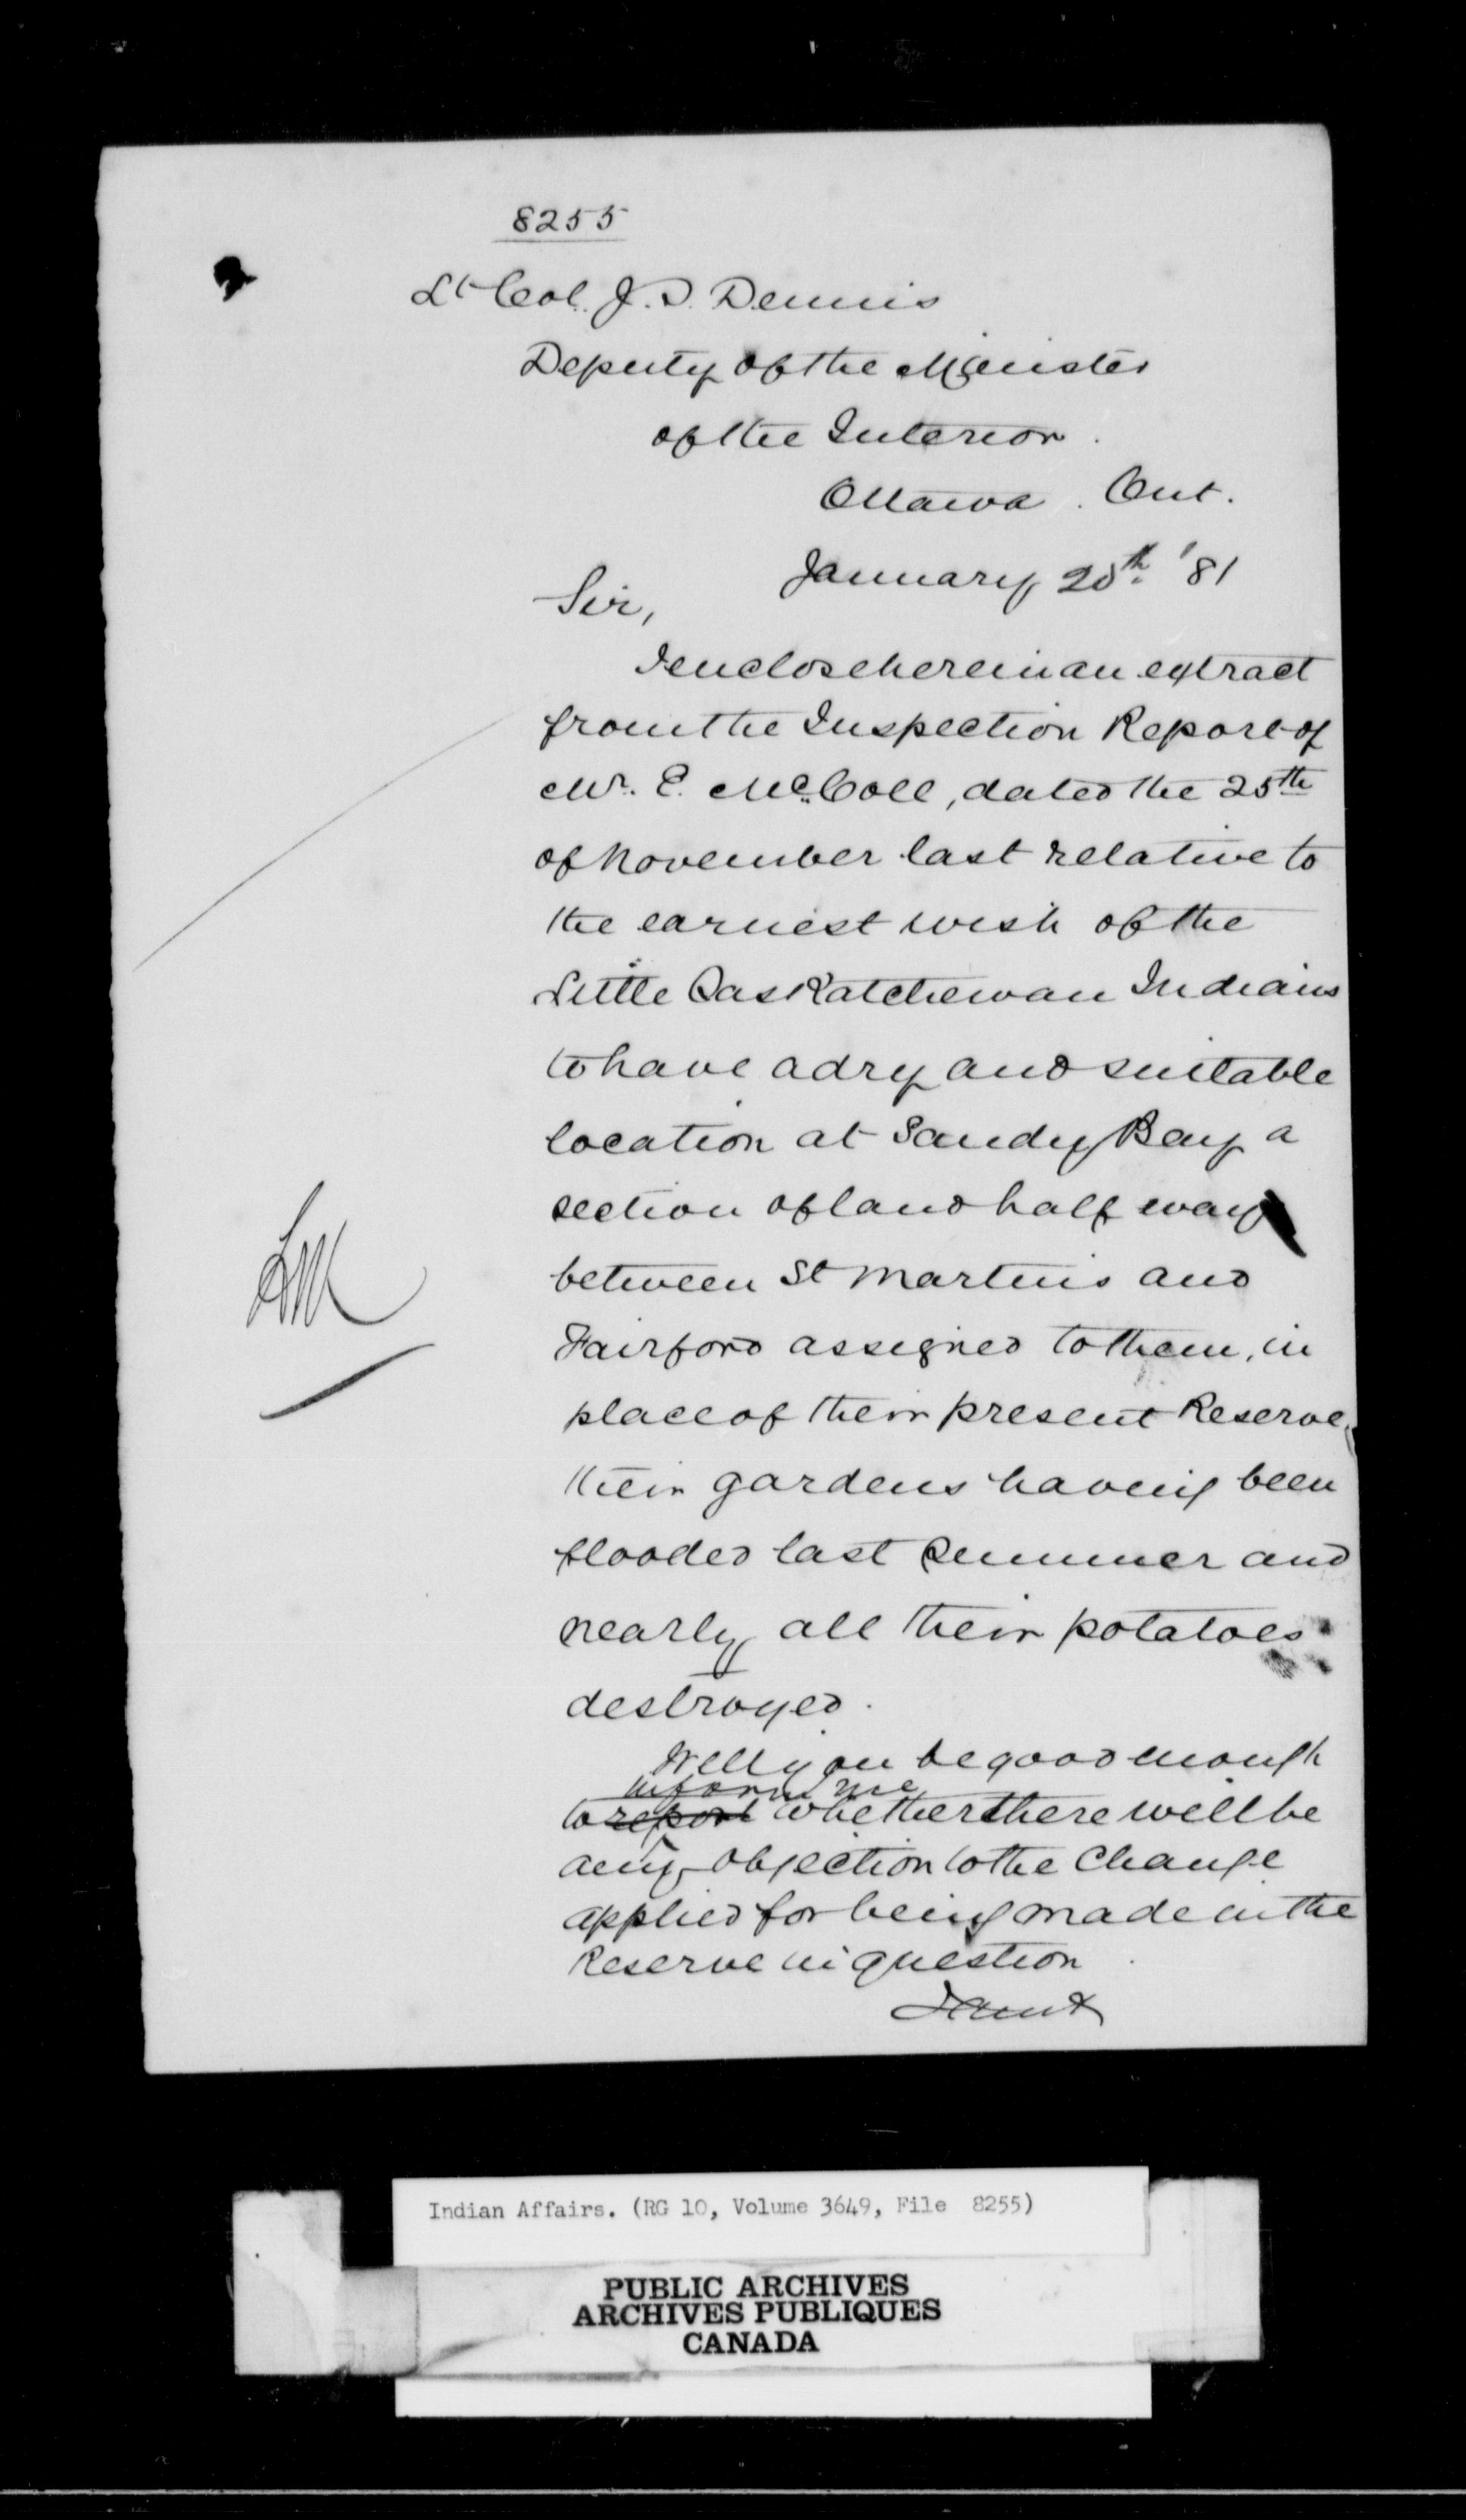 8255
Lt Col. J. S. Dennis
Deputy of the Minister
of the Interior.
Ottawa. Ont.
January 20th '81
Sir,
I enclose herein an extract
from the Inspection Report of
Mr. E. McColl, dated the 25th
of November last relative to
the earnest wish of the
Little Saskatchewan Indians
to have a dry and suitable
location at Sandy Bay a
section of land half way
between St Martins and
Fairford assigned to them, in
place of their present Reserve,
their gardens having been
flooded last Summer and
nearly all their potatoes
destroyed.
Will you be good enough
inform me
to report whether there will be
any objection to the change
applied for being made in the
Reserve in question.
Indian Affairs. (RG 10, Volume 3649, File 8255)
PUBLIC ARCHIVES
ARCHIVES PUBLIQUES
CANADA